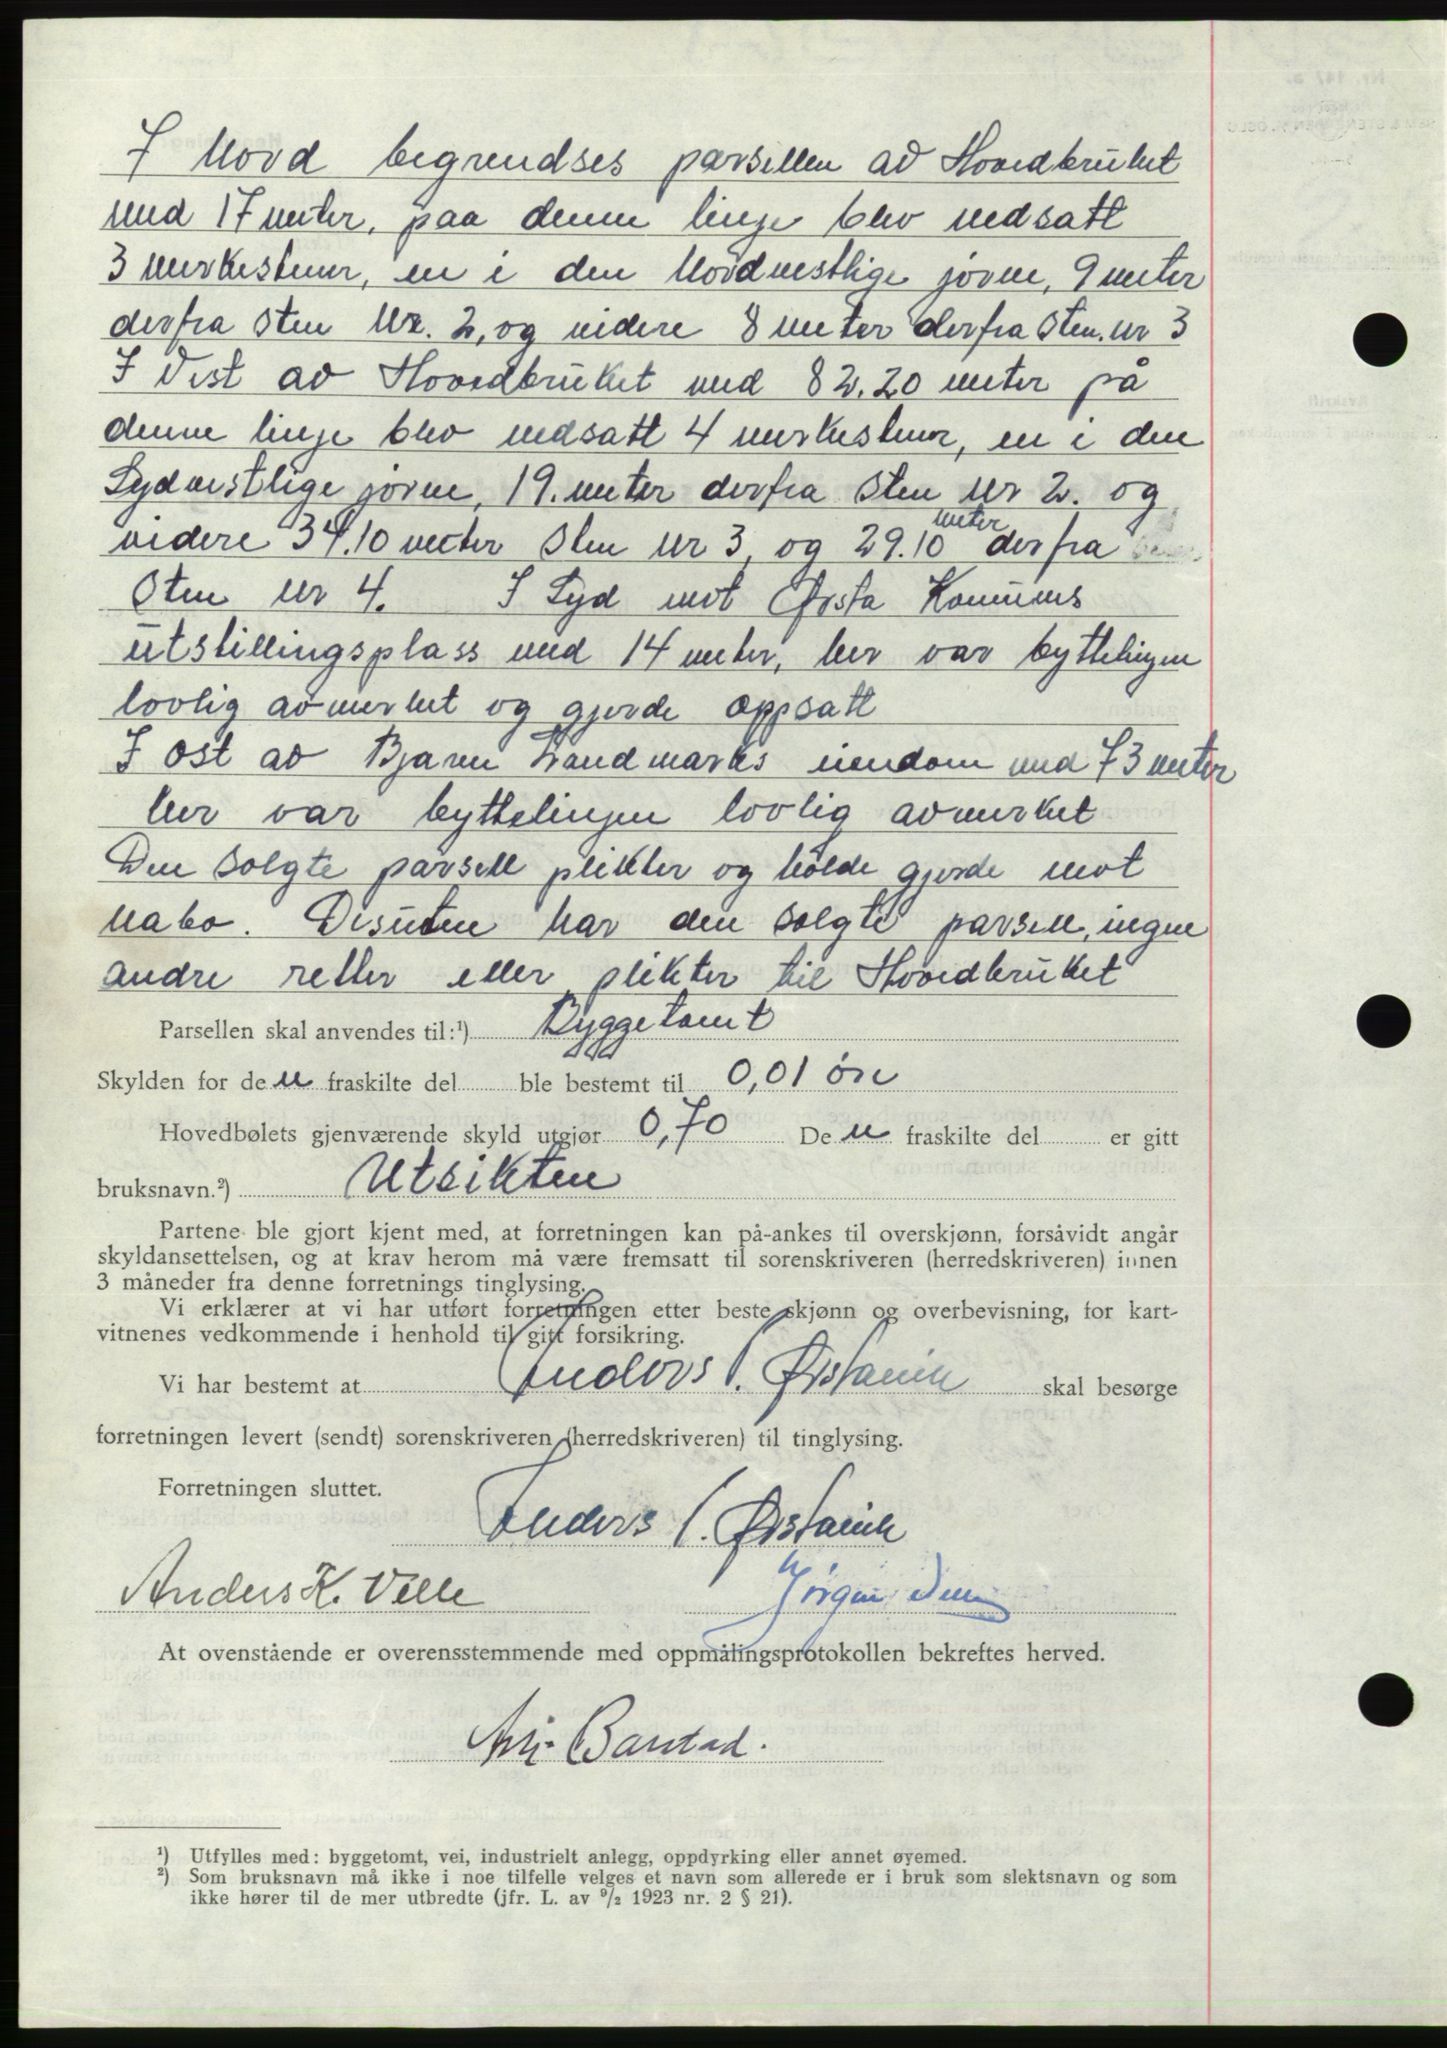 I Nord begrendses parsellen av Hovedbruket
med 17 meter, paa denne linje blev nedsatt
3 merkestener, en i den Nordvestlige jörne, 9 meter
derfra sten Nr. 2, og videre 8 meter derfra sten. nr 3
I Vest av Hovedbruket med 82.20 meter på
denne linje blev nedsatt 4 merkestener, en i den
Sydvestlige jörne, 19. meter derfra sten nr 2. og
videre 34.10 meter sten nr 3, og 29.10 meter derfra
sten nr 4. I Syd mot Ørsta Komunes
utstillingsplass med 14 meter, her var byttelinjen
lovlig avmerket og gjerde oppsatt
I ost av Bjarne Landmarks eiendom med 73 meter
her var byttelinjen lovlig avmerket
Den solgte parsell plikter og holde gjerde mot
nabo. Desuten har den solgte parsell, ingen
andre retter eller plikter til Hovedbruket
Parsellen skal anvendes til:¹) Byggetomt
Skylden for den fraskilte del ble bestemt til 0,01 öre
Hovedbølets gjenværende skyld utgjør 0,70 Den fraskilte del er gitt
bruksnavn.²) Utsikten
Partene ble gjort kjent med, at forretningen kan på-ankes til overskjønn, forsåvidt angår
skyldansettelsen, og at krav herom må være fremsatt til sorenskriveren (herredskriveren) innen
3 måneder fra denne forretnings tinglysing.
Vi erklærer at vi har utført forretningen etter beste skjønn og overbevisning, for kart-
vitnenes vedkommende i henhold til gitt forsikring.
Vi har bestemt at Anders . Ørstavik skal besørge
forretningen levert (sendt) sorenskriveren (herredskriveren) til tinglysing.
Forretningen sluttet.
Anders . Ørstavik
Anders K. Velle Jörgen
At ovenstående er overensstemmende med oppmålingsprotokollen bekreftes herved.
Barstad.
¹) Utfylles med: byggetomt, vei, industrielt anlegg, oppdyrking eller annet øyemed.
²) Som bruksnavn må ikke i noe tilfelle velges et navn som allerede er i bruk som slektsnavn og som
ikke hører til de mer utbredte (jfr. L. av ⁹/₂ 1923 nr. 2 § 21).